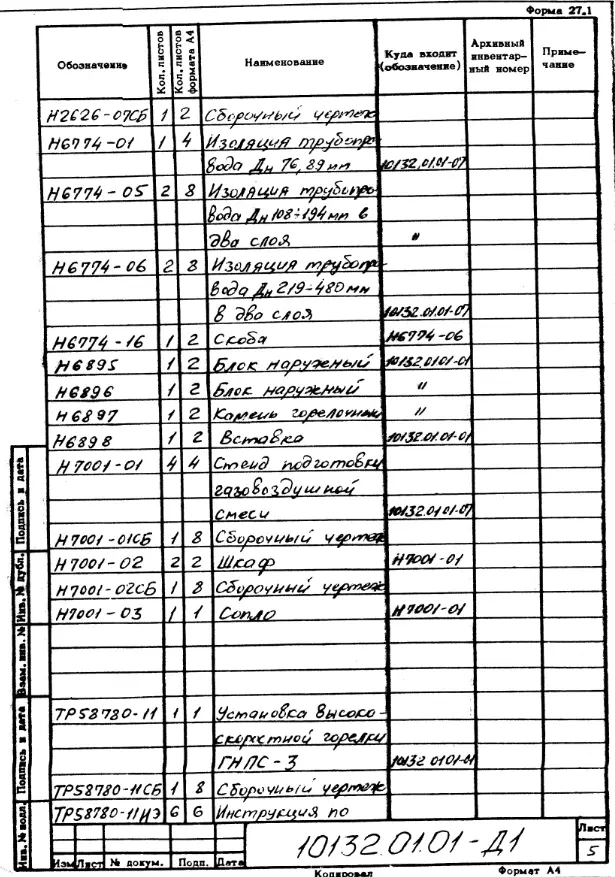 Форма 27.1
Обозначение Кол. листов Кол. листов формата А4 Наименование Куда входит (обозначение) Архивный инвентар-ный номер Приме-чание
Н2626-07СБ 1 2 Сборочный чертеж
Н6774-01 1 4 Изоляция трубопро-
вода Дн 76, 89 мм 10132.01.01-07
Н6774-05 2 8 Изоляция трубопро-
вода Дн 108÷194 мм в
два слоя "
Н6774-06 2 8 Изоляция трубопро-
вода Дн 219-480 мм
в два слоя 10132.01.01-07
Н6774-16 1 2 Скоба Н6774-06
Н6895 1 2 Блок наружный 10132.01.01-01
Н6896 1 2 Блок наружный "
Н6897 1 2 Камень горелочный "
Н6898 1 2 Вставка 10132.01.01-01
Н7001-01 4 4 Стенд подготовки
газовоздушной
смеси 10132.01.01-07
Н7001-01СБ 1 8 Сборочный чертеж
Н7001-02 2 2 Шкаф Н7001-01
Н7001-02СБ 1 8 Сборочный чертеж
Н7001-03 1 1 Сопло Н7001-01
ТР58780-11 1 1 Установка высоко-
скоростной горелки
ГНПС-3 10132.01.01-01
ТР58780-11СБ 1 8 Сборочный чертеж
ТР58780-11ИЭ 6 6 Инструкция по
Инв. № подл. Подпись и дата Взам. инв. № Инв. № дубл. Подпись и дата
Изм Лист № докум. Подп. Дата
10132.01.01-Д1
Лист
5
Копировал Формат А4